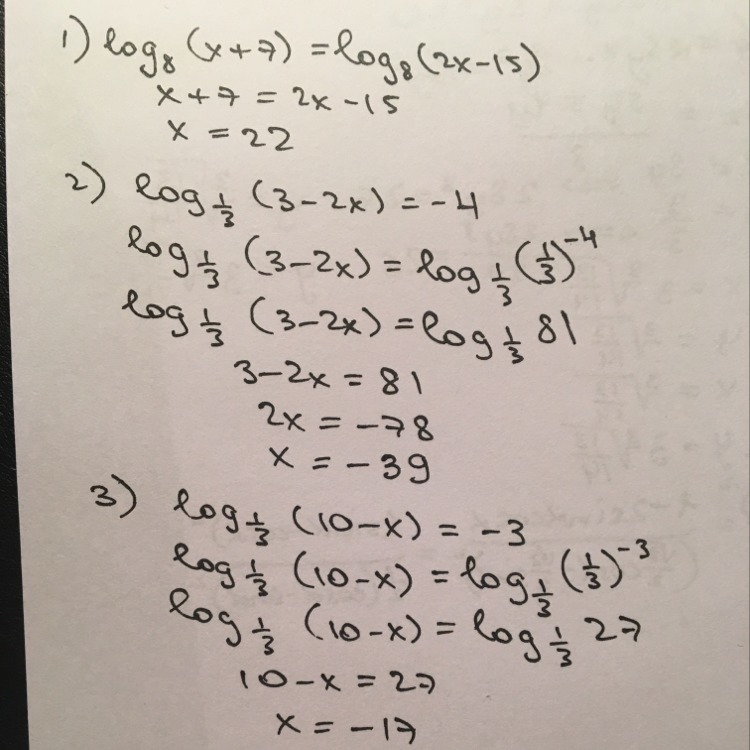 1) log₈ (x+7) = log₈ (2x-15)
x+7 = 2x-15
x = 22
2) log_{1/3} (3-2x) = -4
log_{1/3} (3-2x) = log_{1/3} (1/3)^{-4}
log_{1/3} (3-2x) = log_{1/3} 81
3-2x = 81
2x = -78
x = -39
3) log_{1/3} (10-x) = -3
log_{1/3} (10-x) = log_{1/3} (1/3)^{-3}
log_{1/3} (10-x) = log_{1/3} 27
10-x = 27
x = -17